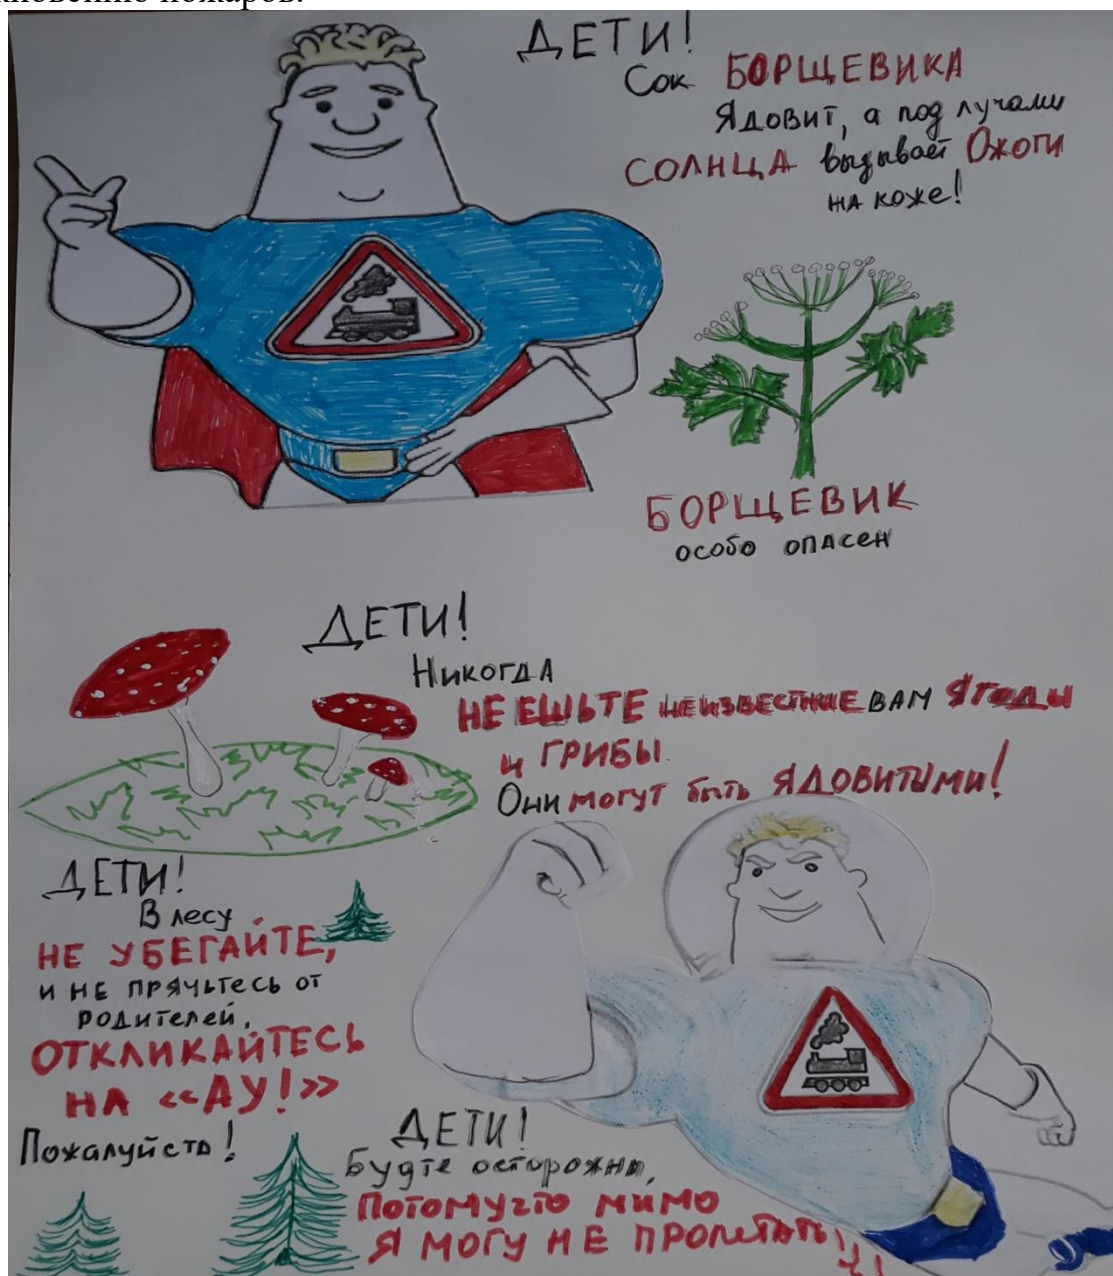 ДЕТИ!
Сок БОРЩЕВИКА
ЯДОВИТ, а под лучами
СОЛНЦА вызывает Ожоги
на коже!
БОРЩЕВИК
особо опасен
ДЕТИ!
Никогда
НЕ ЕШЬТЕ НЕИЗВЕСТНИЕ ВАМ Ягоды
и ГРИБЫ.
Они могут быть ЯДОВИТЫМИ!
ДЕТИ!
В лесу
НЕ УБЕГАЙТЕ,
и НЕ ПРЯЧЬТЕСЬ от
родителей,
ОТКЛИКАЙТЕСЬ
НА «АУ!»
Пожалуйста!
ДЕТИ!
Будте осторожны,
Потомучто мимо
Я МОГУ НЕ ПРОЛЕТАТЬ!!!